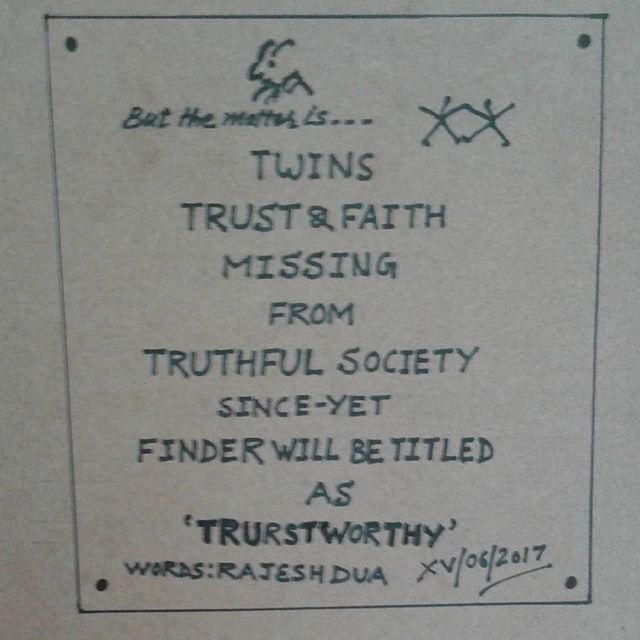 But the matter is....
TWINS
TRUST & FAITH
MISSING
FROM
TRUTHFUL SOCIETY
SINCE-YET
FINDER WILL BE TITLED
AS
'TRURSTWORTHY'
WORDS: RAJESH DUA XV/06/2017